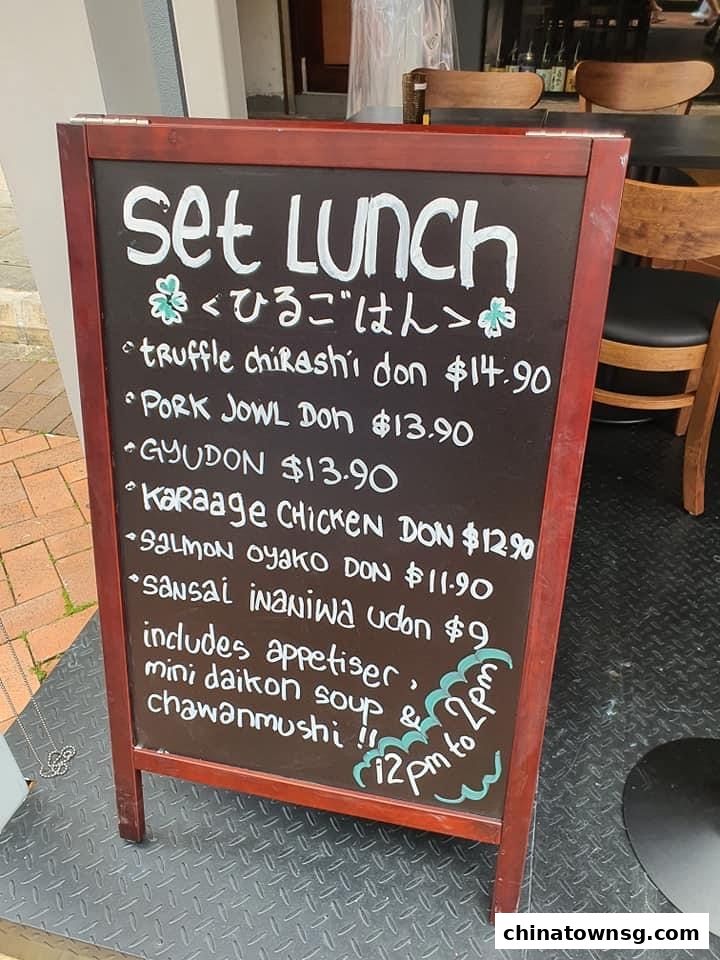 Set LUNCh
<ひるごはん>
• tRuffle chiRashi don $14.90
• PORK JOWL DOn $13.90
• GYUDON $13.90
• KaRaage CHICKEN DON $12.90
• SaLMON OyaKO DON $11.90
• SaNSai iNaNiWa udon $9
includes appetiser,
mini daikon soup &
chawanmushi !!
12pm to 2pm
chinatownsg.com